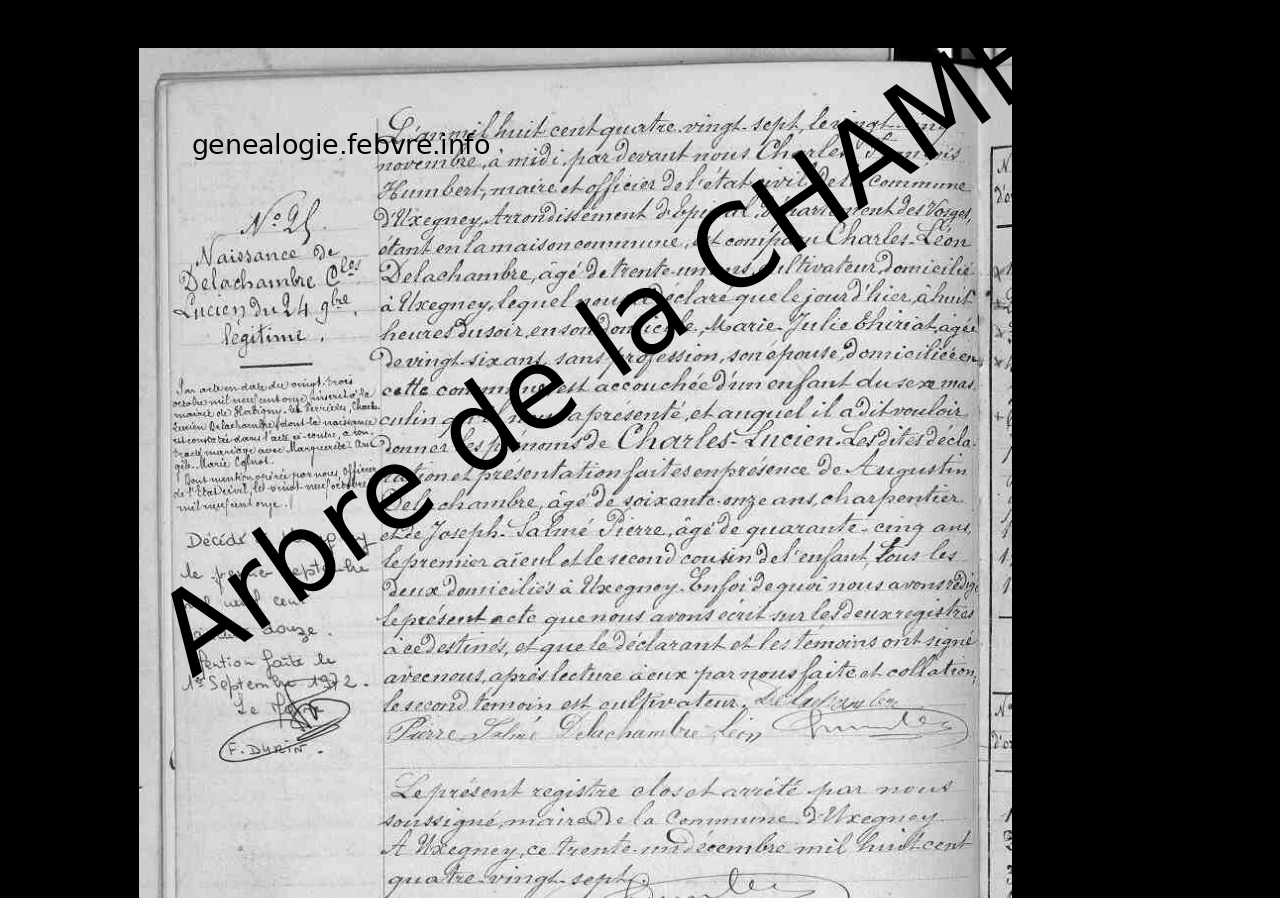 genealogie.febvre.info
Arbre de la CHAMP
L'an mil huit cent quatre-vingt-sept, le vingt-cinq
novembre, à midi, par devant nous Charles François
Humbert, maire et officier de l'état civil de la commune
d'Uxegney, Arrondissement d'Epinal, département des Vosges,
étant en la maison commune, est comparu Charles-Léon
Delachambre, âgé de trente-un ans, cultivateur, domicilié
à Uxegney, lequel nous a déclaré que le jour d'hier, à huit
heures du soir, en son domicile, Marie-Julie Thiriat, agée
de vingt-six ans, sans profession, son épouse, domiciliée en
cette commune est accouchée d'un enfant du sexe mas-
culin qu'il nous a présenté, et auquel il a dit vouloir
donner les prénoms de Charles-Lucien. Les dites décla-
ration et présentation faites en présence de Augustin
Delachambre, âgé de soixante-onze ans, charpentier
et de Joseph-Salmé Pierre, âgé de quarante-cinq ans,
le premier aïeul et le second cousin de l'enfant, tous les
deux domiciliés à Uxegney. En foi de quoi nous avons rédigé
le présent acte que nous avons écrit sur les deux registres
à ce destinés, et que le déclarant et les témoins ont signé
avec nous, après lecture à eux par nous faite et collation,
le second temoin est cultivateur. Delachambre
Pierre Salmé Delachambre léon
Le présent registre clos et arrêté par nous
soussigné, maire de la Commune d'Uxegney
A Uxegney, ce trente-un décembre mil huit cent
quatre-vingt-sept.
N° 25.
Naissance de
Delachambre Cles
Lucien du 24 9bre,
légitime.
Par acte en date du vingt-trois
octobre mil neuf cent onze, inscrit à la
mairie de Hadigny-les-Verrières, Charles
Lucien Delachambre, dont la naissance
est constatée dans l'acte ci-contre, a con-
tracté mariage avec Marguerite
Marie
Dont mention opérée par nous, Officier
de l'Etat civil, le vingt-neuf octobre
mil neuf cent onze.
Décédé
le premier septembre
mil neuf cent
douze.
Mention faite le
1er Septembre 1972.
Le Maire
F. DURIN.